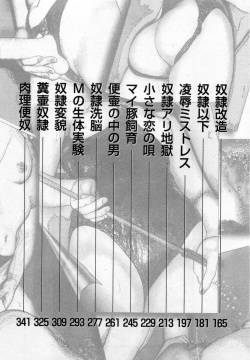 奴隷改造 165
奴隷以下 181
凌辱ミストレス 197
奴隷アリ地獄 213
小さな恋の唄 229
マイ豚飼育 245
便壷の中の男 261
奴隷洗脳 277
Mの生体実験 293
奴隷変貌 309
糞壷奴隷 325
肉理便奴 341